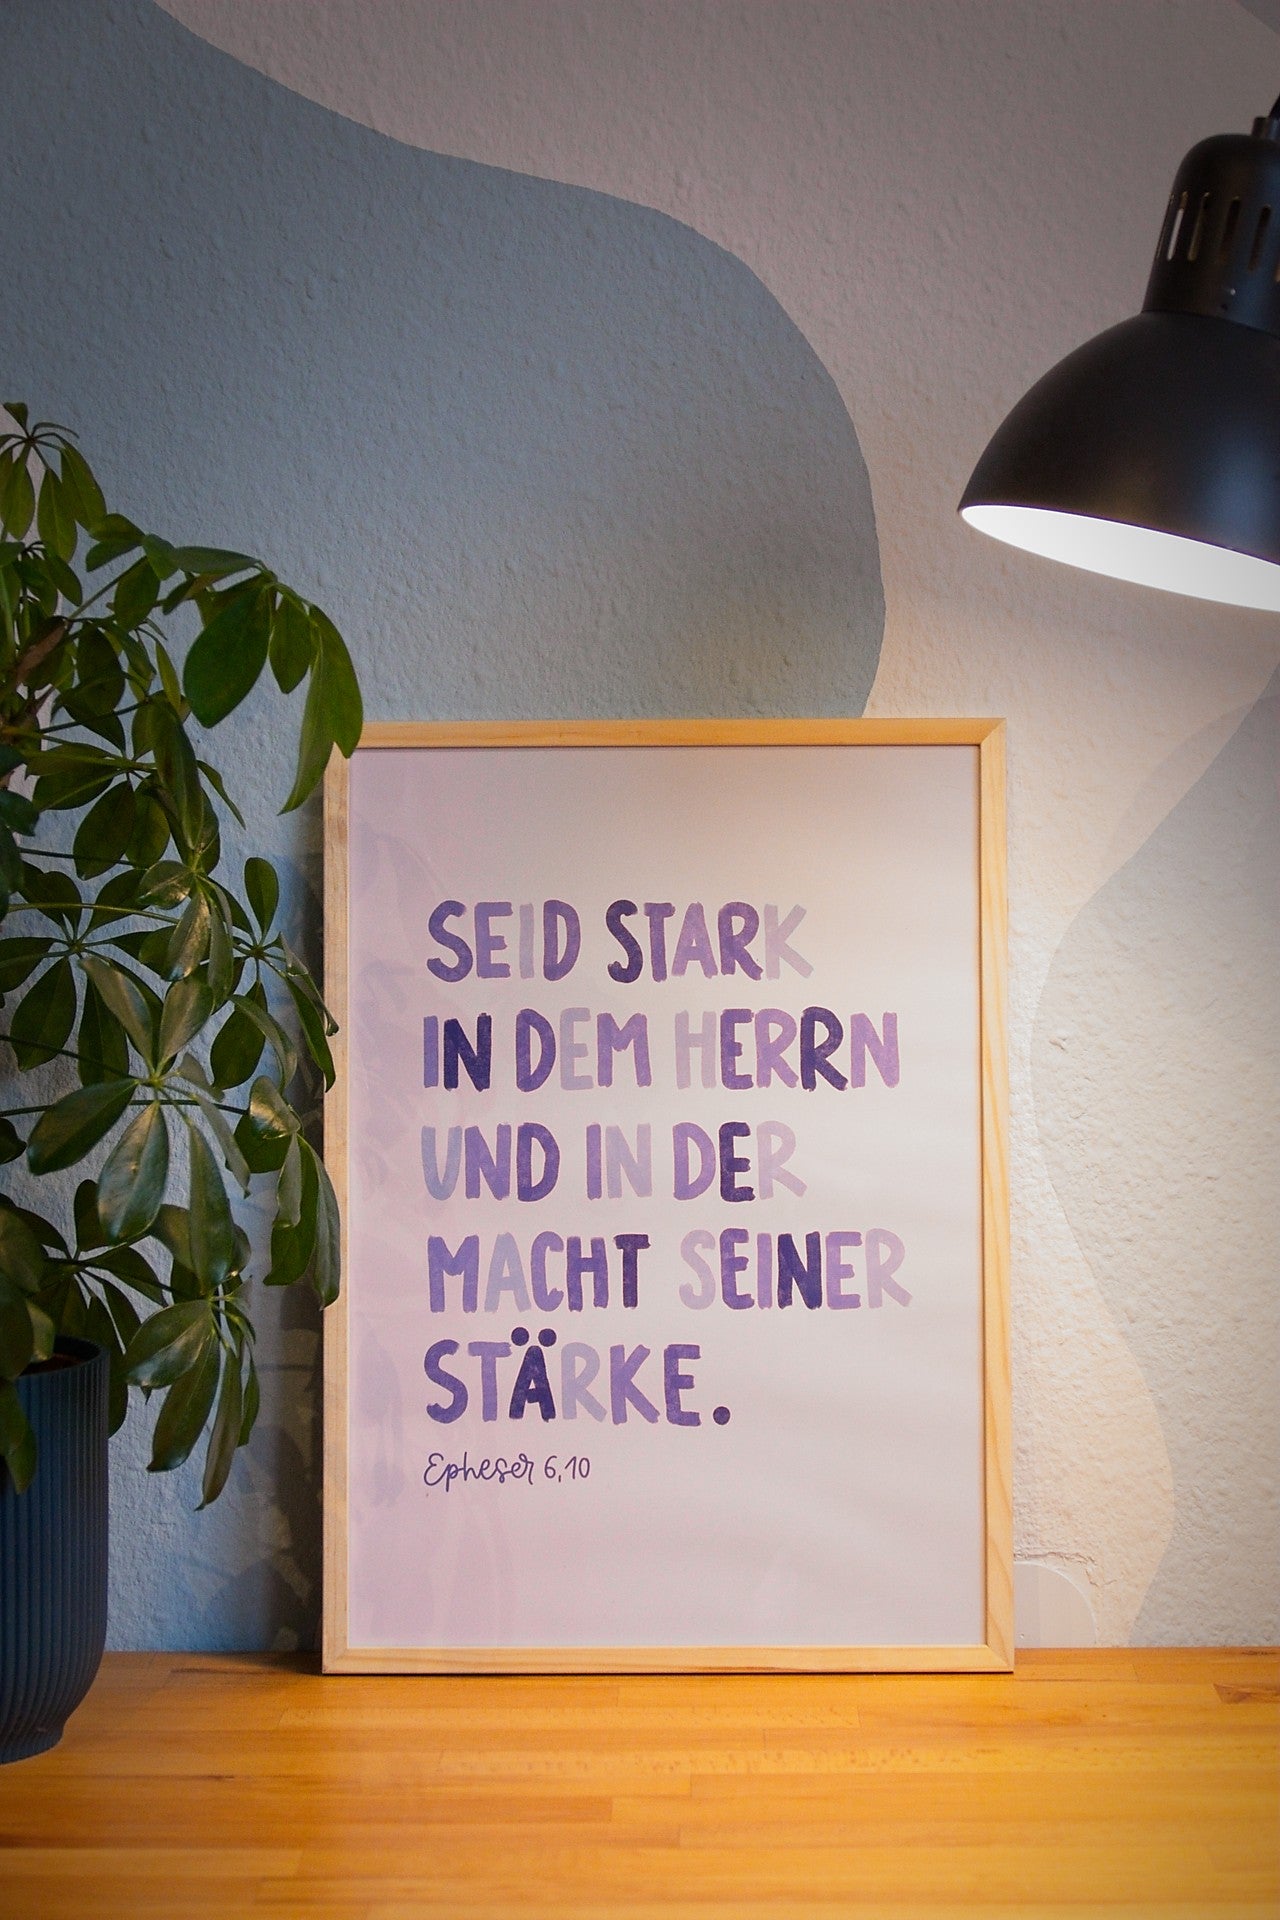 SEID STARK
IN DEM HERRN
UND IN DER
MACHT SEINER
STÄRKE.
Epheser 6,10